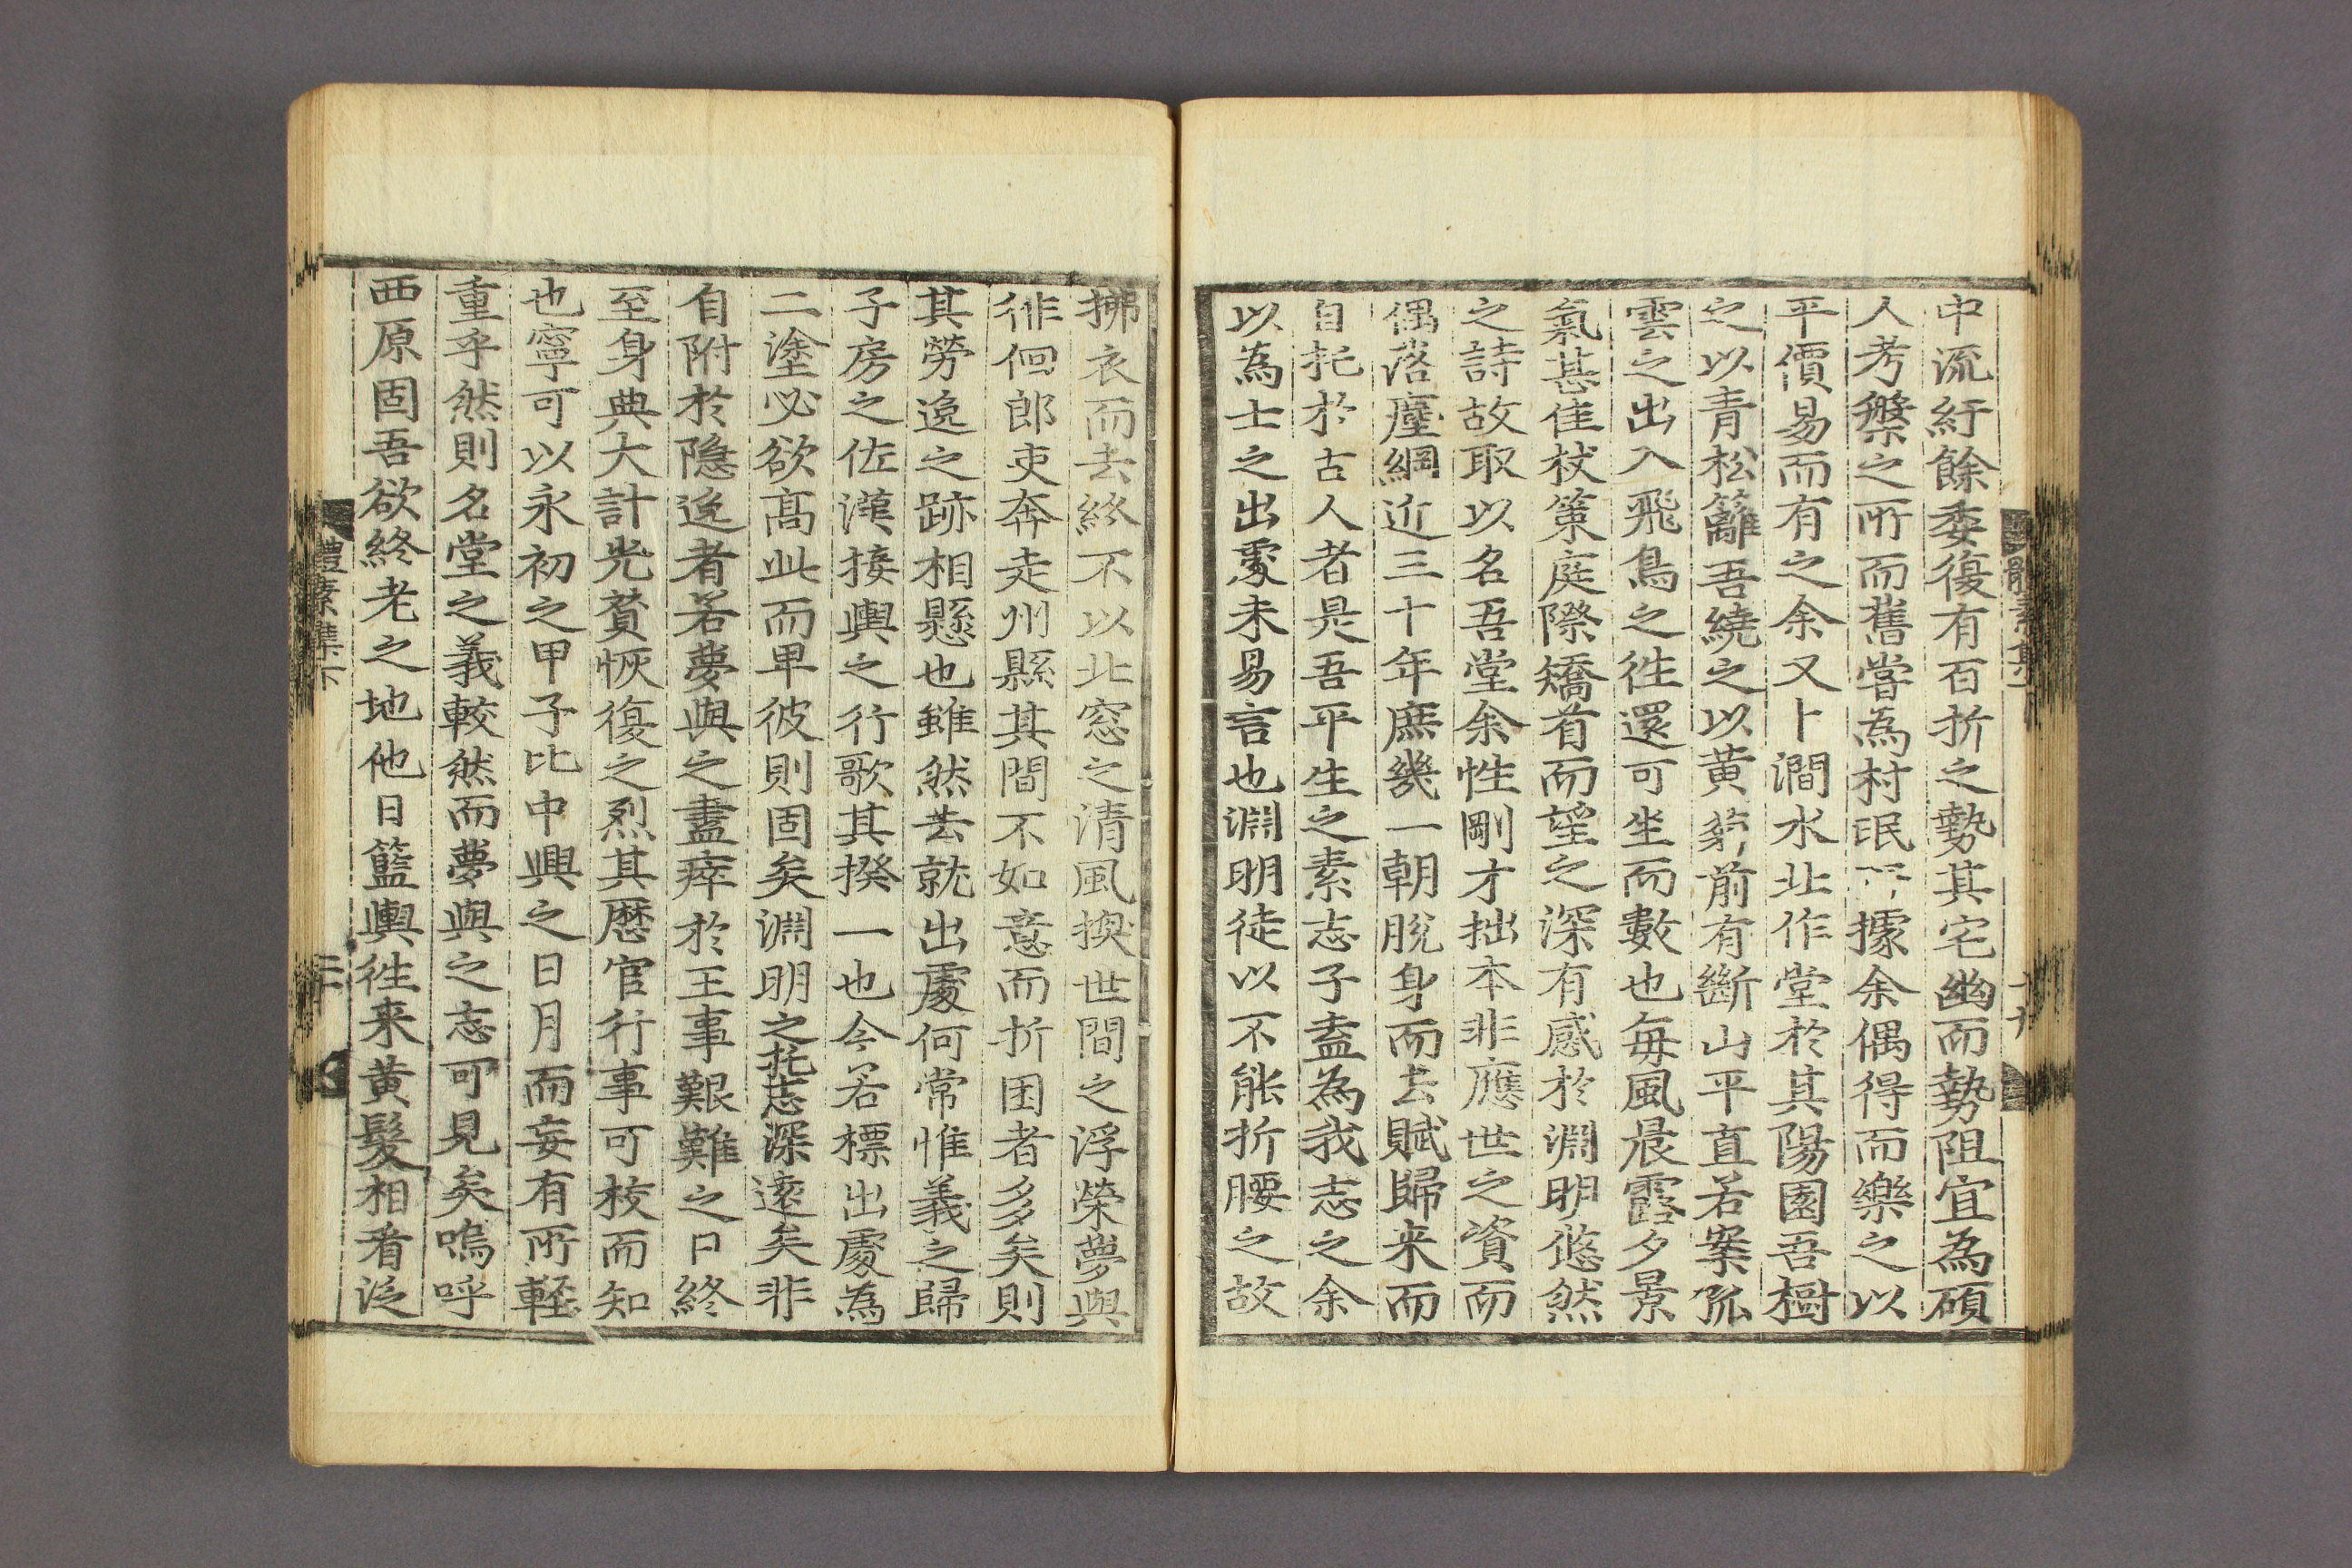 中流紆餘委復有百折之勢其宅幽而勢阻宜為碩
人考槃之所而舊嘗為村氓所據余偶得而樂之以
平價易而有之余又卜澗水北作堂於其陽園吾樹
之以青松籬吾繞之以黄菊前有斷山平直若案孤
雲之出入飛鳥之徃還可坐而數也每風晨露夕景
氣甚佳杖策庭際矯首而望之深有感於淵明悠然
之詩故取以名吾堂余性剛才拙本非應世之資而
偶落塵網近三十年庶幾一朝脫身而去賦歸来而
自托於古人者是吾平生之素志子盍為我志之余
以為士之出處未易言也淵明徒以不能折腰之故
拂衣而去終不以北窓之清風換世間之浮榮夢與
徘佪郎吏奔走州縣其間不如意而折困者多矣則
其勞逸之跡相懸也雖然去就出處何常惟義之歸
子房之佐漢接輿之行歌其揆一也今若標出處為
二塗必欲髙此而卑彼則固矣淵明之托志深遠矣非
自附於隠逸者若夢與之盡瘁於王事艱難之日終
至身典大計光賛恢復之烈其歴官行事可校而知
也寧可以永初之甲子比中興之日月而妄有所輕
重乎然則名堂之義較然而夢與之志可見矣嗚呼
西原固吾欲終老之地他日籃輿徃来黄髮相看泛
體素集下
二十